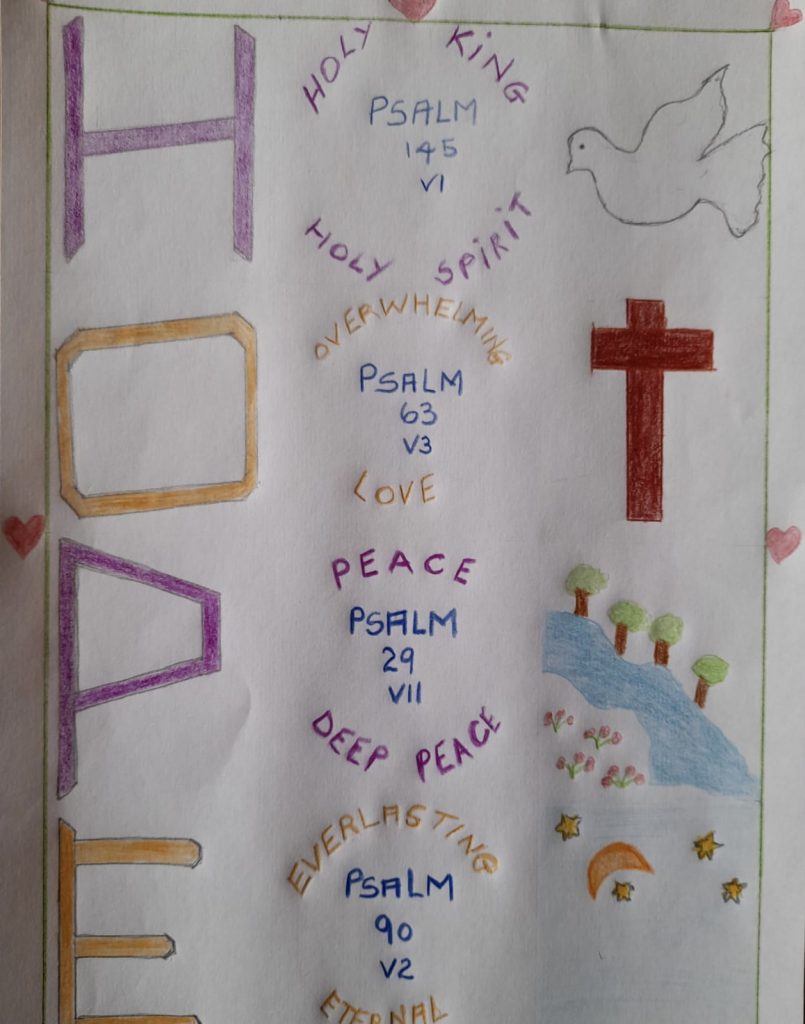 H
HOLY KING
PSALM
145
V1
HOLY SPIRIT
O
OVERWHELMING
PSALM
63
V3
LOVE
P
PEACE
PSALM
29
V11
DEEP PEACE
E
EVERLASTING
PSALM
90
V2
ETERNAL